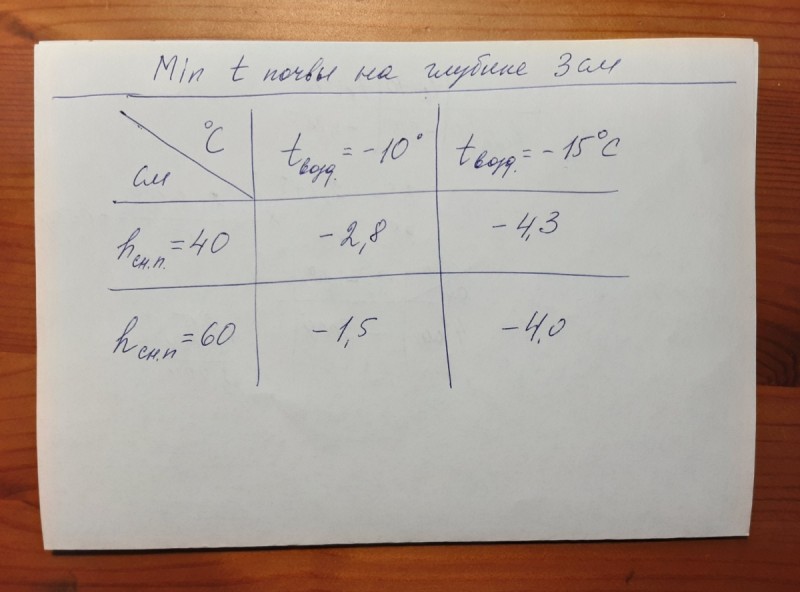 Min t почвы на глубине 3 см
°C
см
tвозд. = -10°
tвозд. = -15°C
hсн.п. = 40
-2,8
-4,3
hсн.п = 60
-1,5
-4,0